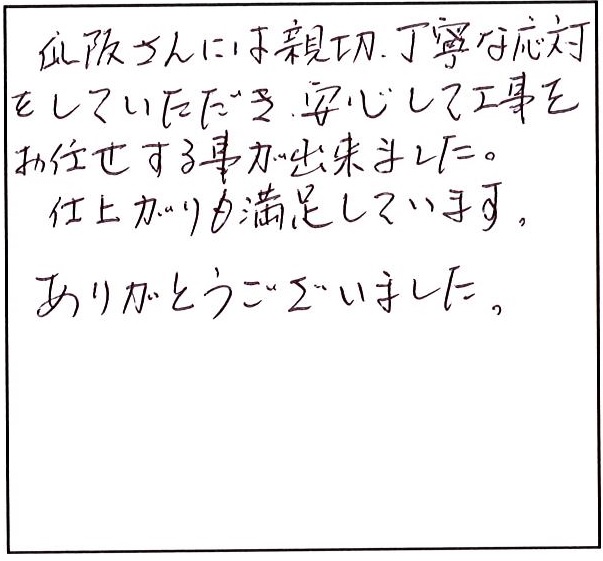 阪さんには親切、丁寧な応対
をしていただき、安心して工事を
お任せする事が出来ました。
仕上がりも満足しています。
ありがとうございました。